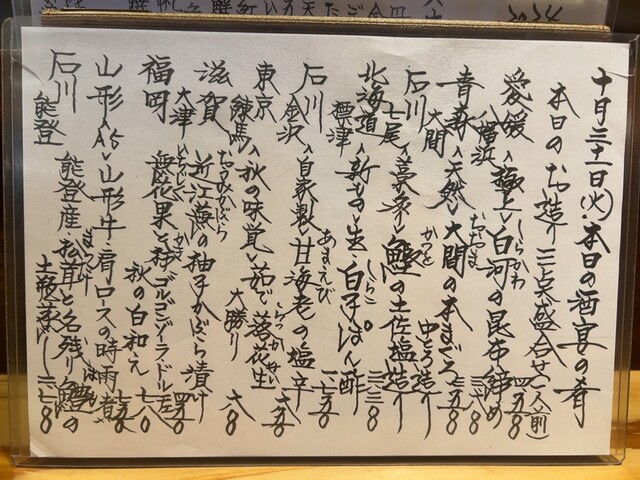 十月三十一日(火)本日の酒宴の肴
本日のお造り 三点盛合せ(一人前)
愛媛 八幡浜 <極上>白河の昆布締め
しらかわ
青森 大間 <天然>大間の本まぐろ 中とろ造り
おおま
石川 七尾 <藁炙>鰹の土佐塩造り
かつお
北海道 標津 <新もの>生・白子ぽん酢
しらこ
石川 金沢 <自家製>甘海老の塩辛 六五〇
あまえび
東京 練馬 <秋の味覚>茹で落花生 大勝り 六八〇
らっかせい
滋賀 大津 近江蕪の柚子かぶら漬け 四五〇
おうみかぶら
福岡 無花果と柿ゴルゴンゾーラ・ドルチェ 秋の白和え 七八〇
いちじく かき
山形 <A5>山形牛・肩ロースの時雨煮 七五〇
石川 能登 能登産松茸と名残り鱧の土瓶蒸し
まつたけ